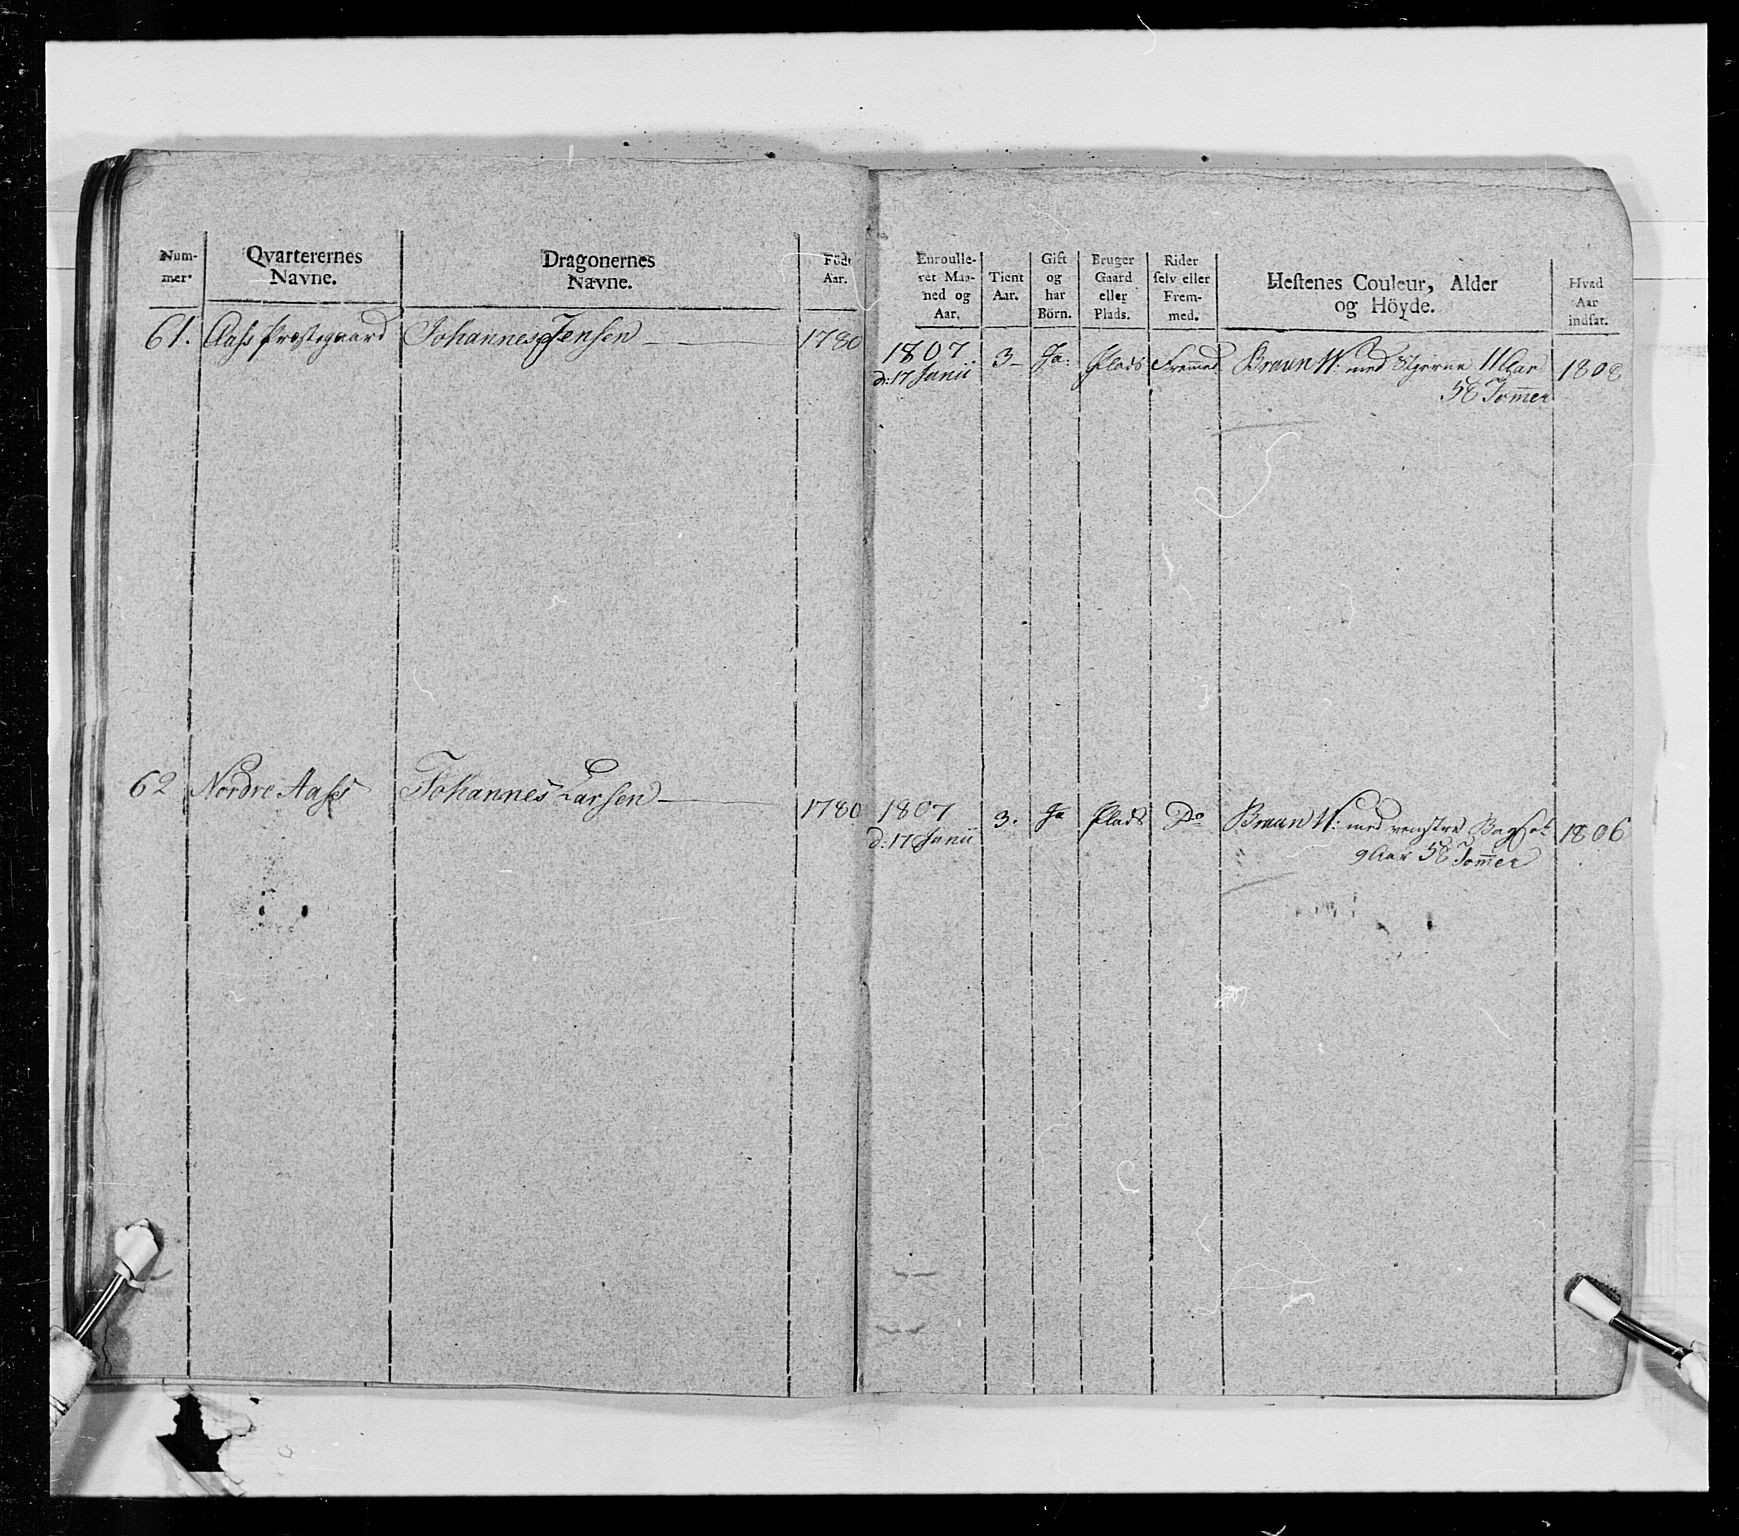 Num-
mer.
Qvarterernes
Navne.
Dragonernes
Navne.
Födt
Aar.
Enroulle-
ret Maa-
ned og
Aar.
Tient
Aar.
Gift
og
har
Börn.
Bruger
Gaard
eller
Plads.
Rider
selv eller
Frem-
med.
Hestenes Couleur, Alder
og Höyde.
Hvad
Aar
indsat.
61. Aass Præstegaard Johannes Jensen 1780 1807 3 Ja: Plads Fremmed Bruun W: med Stjerne 11 Aar 1808
d: 17 Junii
58 Tommer
62 Nordre Aass Johannes Larsen 1780 1807 3. Ja Plads Do Bruun W: med venstre 1806
d: 17 Junii
9 Aar 58 Tommer